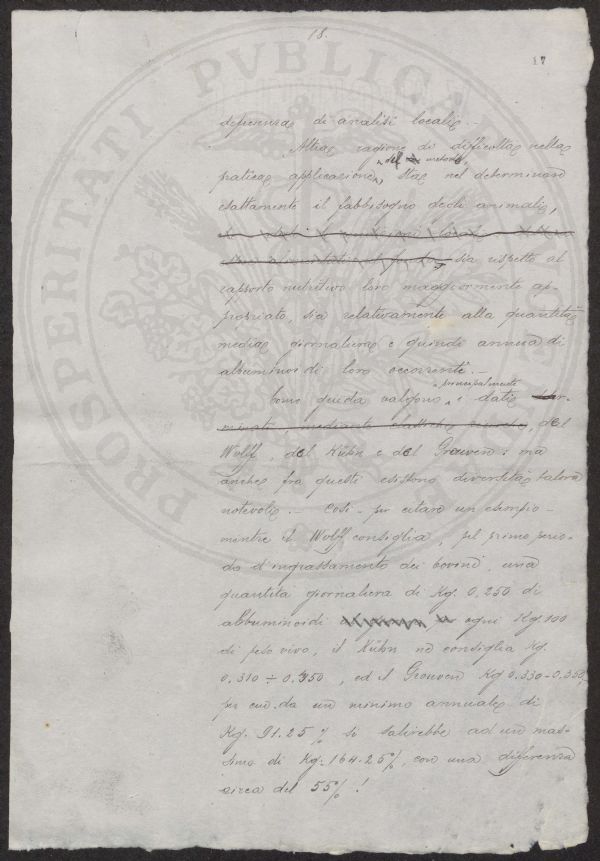 18.
17
deficienza di analisi locali. -
Altra ragione di difficoltà nella
pratica applicazione del metodo, sta nel determinare
esattamente il fabbisogno degli animali,
sia rispetto al
rapporto nutritivo loro maggiormente ap-
propriato, sia relativamente alla quantità
media giornaliera e quindi annua di
albuminoidi loro occorrente. -
Come guida valgono principalmente i dati
del
Wolff, del Kühn e del Grouven: ma
anche fra questi esistono diversità talora
notevoli. - Così - per citare un esempio -
mentre il Wolff consiglia, pel primo perio-
do d'ingrassamento dei bovini, una
quantità giornaliera di Kg. 0,250 di
albuminoidi ogni Kg. 100
di peso vivo, il Kühn ne consiglia Kg.
0.310 ÷ 0.350, ed il Grouven Kg 0.330-0.350,
per cui da un minimo annuale di
Kg. 91.25 % si salirebbe ad un mas-
simo di Kg. 164.25%, con una differenza
circa del 55% !
PROSPERITATI PVBLICAE